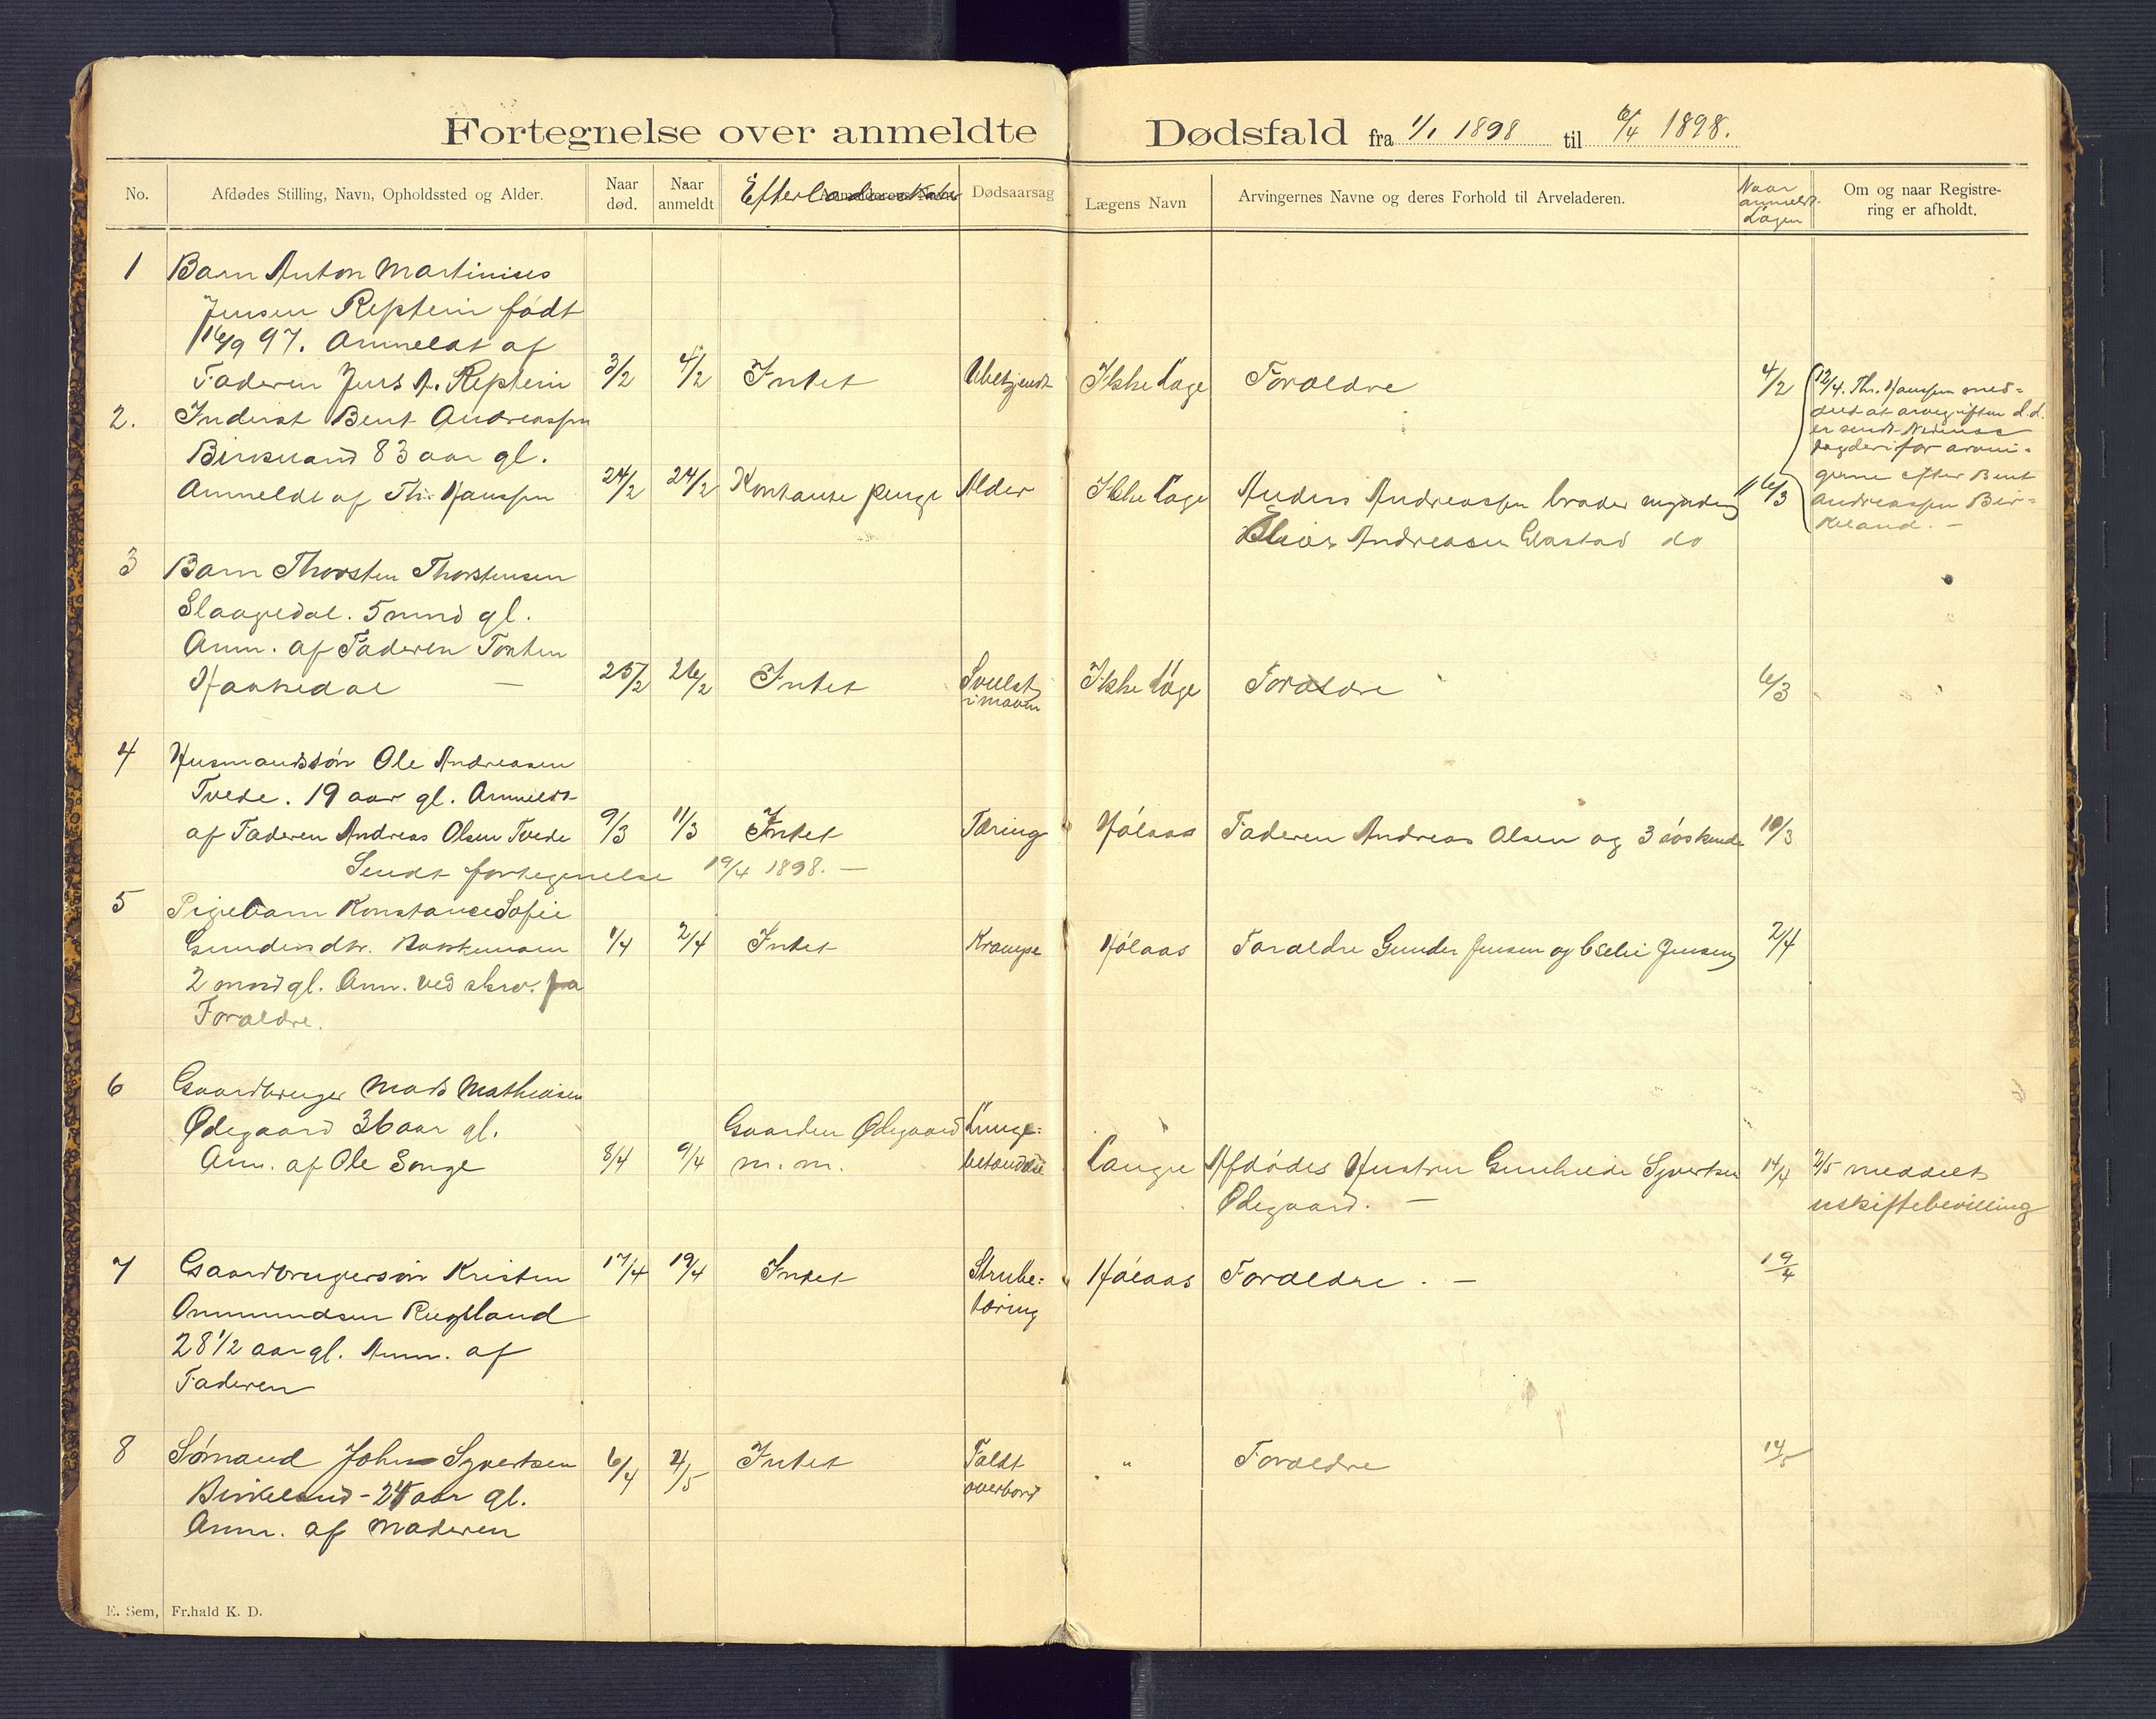 Fortegnelse over anmeldte Dødsfald fra 1/1 1898 til 6/4 1898.
No. Afdødes Stilling, Navn, Opholdssted og Alder. Naar død. Naar anmeldt Efterladenskaber Dødsaarsag Lægens Navn Arvingernes Navne og deres Forhold til Arveladeren. Naar anmeldt Lagen Om og naar Registrering er afholdt.
1 Barn Anton Martinius
Jensen Repstein født
16/9 97. Anmeldt af
Faderen Jens A. Repstein 3/2 4/2 Intet Ubekjendt Ikke Læge Forældre 4/2
2. Inderst Bent Andreassen
Birkeland 83 aar gl.
Anmeldt af Th. Hanssen 24/2 24/2 Kontante penge Alder Ikke Læge Anders Andreassen broder myndig 6/3
Elias Andreasen Glastad do
12/4. Th. Hanssen med=
delt at arvegiften d.d.
er sendt Nedenæs
fogderi for arvin=
gerne efter Bent
Andreassen Bir=
keland. —
3 Barn Thorsten Thorstensen
Slaagedal. 5 mnd gl.
Anm. af Faderen Torsten
Haakedal — 25/2 26/2 Intet Svulst i maven Ikke Læge Forældre 6/3
4 Husmandssøn Ole Andreasen
Tvede. 19 aar gl. Anmeldt
af Faderen Andreas Olsen Tvede 9/3 11/3 Intet Tæring Hølaas Faderen Andreas Olsen og 3 søskende 10/3
Sendt fortegnelse 19/4 1898. —
5 Pigebarn Konstance Sofie
Gundersdtr. 1/4 2/4 Intet Krampe Hølaas Forældre Gunder Jensen og Jensen 2/4
2 mnd gl. Anm. ved skrv. fra
Forældre.
6 Gaardbruger Mads Mathiasen
Ødegaard 36 aar gl. Gaarden Ødegaard Lunge=
Anm. af Ole Songe 8/4 9/4 m. m. betændelse Lange Afdødes Hustru Gunhilde Syvertsen 14/4 2/5 meddelt
Ødegaard. — uskiftebevilling
7 Gaardbrugersøn Kristen 17/4 19/4 Intet Strube= Hølaas Forældre. — 19/4
Ommundsen Rugsland tæring
28 1/2 aar gl. Anm. af
Faderen
8 Sømand John Syvertsen 6/4 4/5 Intet Faldt " Forældre 14/5
Birkeland - 24 aar gl. overbord
Anm. af Moderen
E. Sem, Fr.hald K. D.